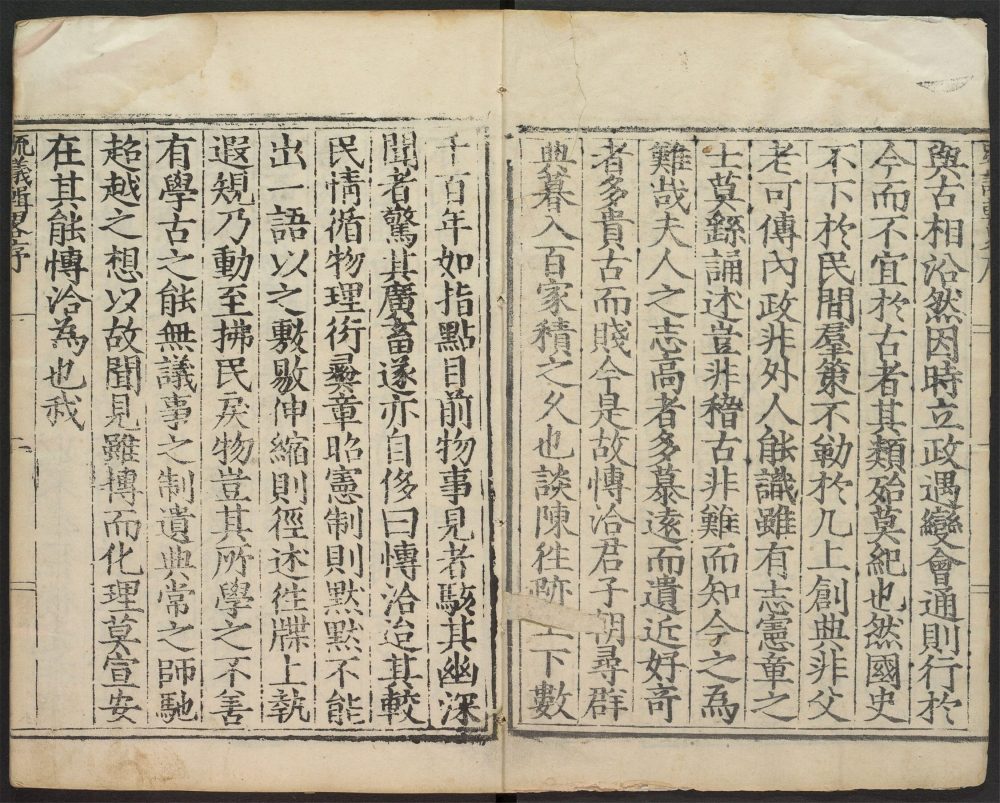 與古相沿然因時立政遇變會通則行於
今而不宜於古者其類殆莫紀也然國史
不下於民間羣策不動於几上創典非父
老可傳內政非外人能識雖有志憲章之
士莫繇誦述豈非稽古非難而知今之為
難哉夫人之志高者多慕遠而遺近好奇
者多貴古而賤今是故慱洽君子朝尋群
典暮入百家積之久也談陳徃跡上下數
千百年如指點目前物事見者駭其幽深
聞者驚其廣畜遂亦自侈曰慱洽迨其較
民情循物理衍彜章昭憲制則默默不能
出一語以之敷敭伸縮則徑述徃牒上執
遐䂓乃動至拂民戾物豈其所學之不善
有學古之能無議事之制遺典常之師馳
超越之想以故聞見雖博而化理莫宣安
在其能慱洽為也哉
疏議輯畧序